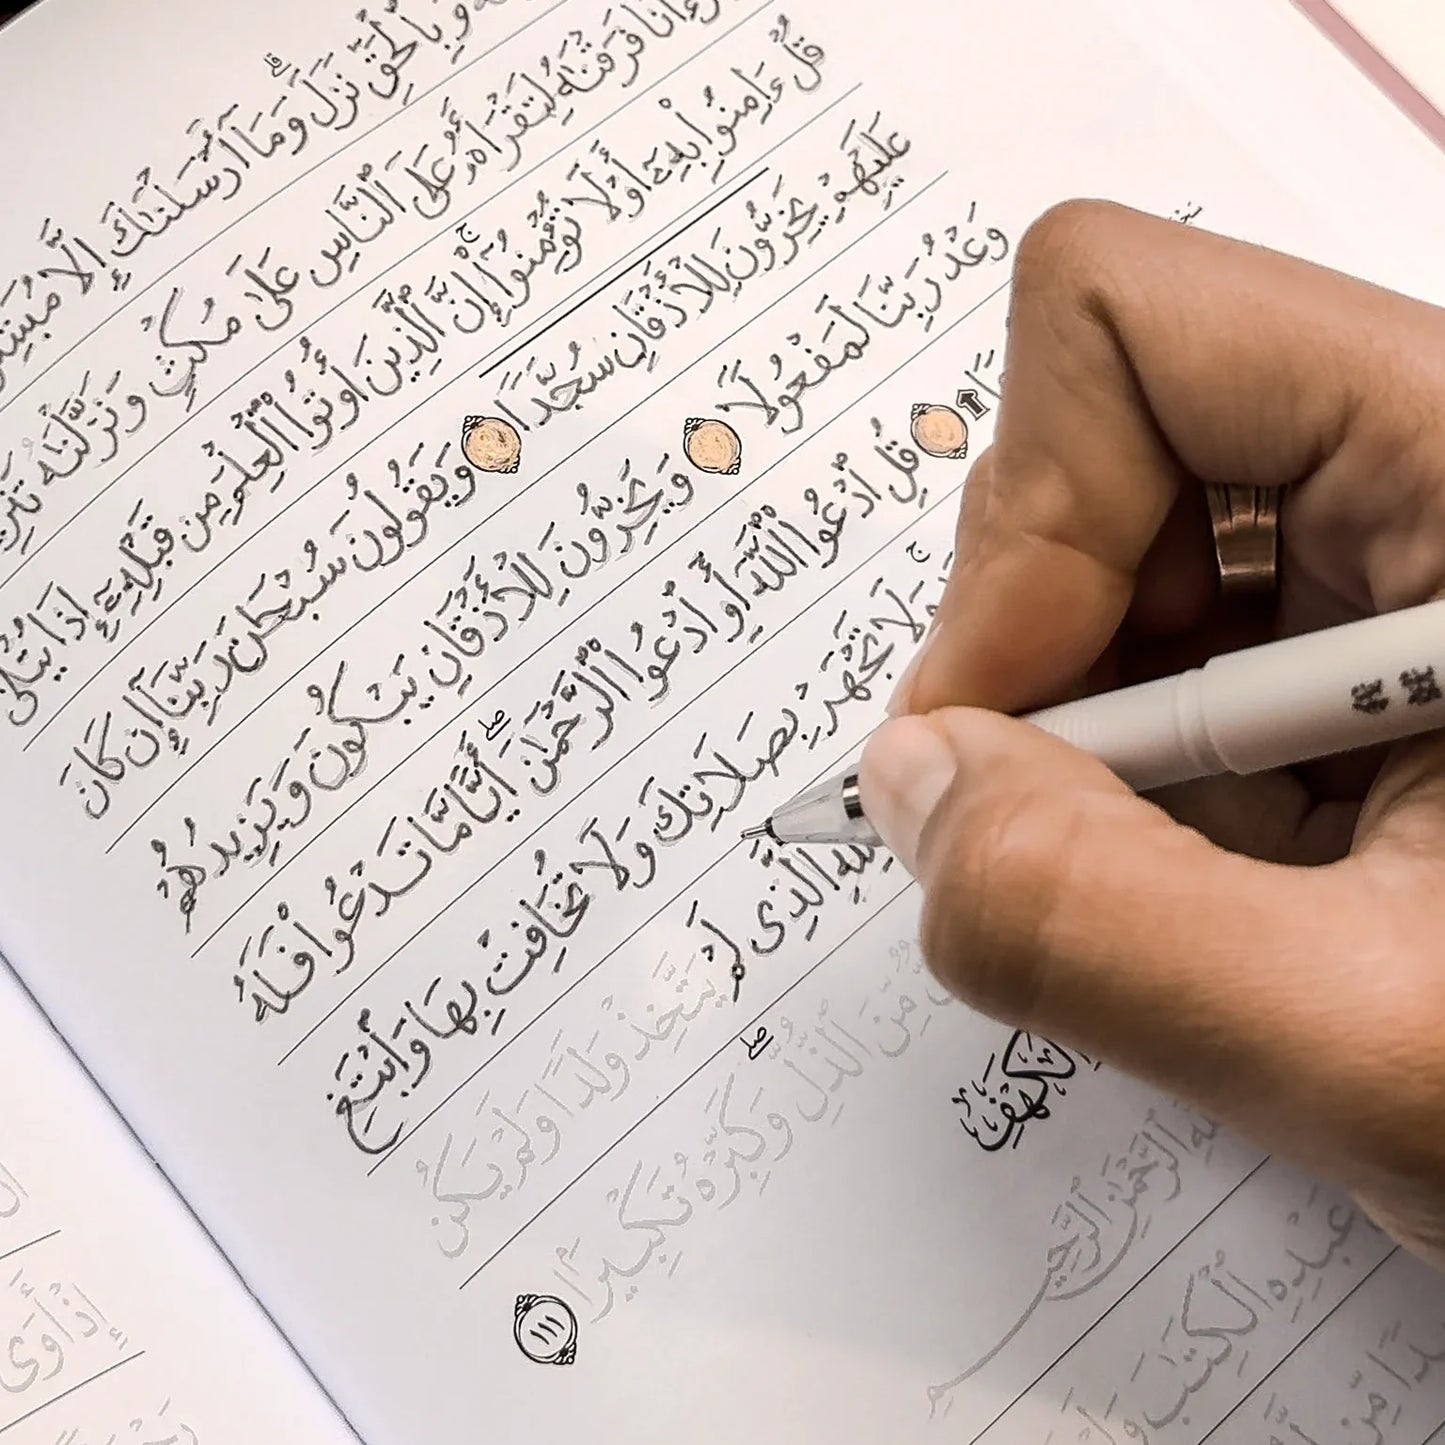 وَبِٱلْحَقِّ نَزَلَ ۗ وَمَآ أَرْسَلْنَٰكَ إِلَّا مُبَشِّرًا
فَرَقْنَٰهُ لِتَقْرَأَهُۥ عَلَى ٱلنَّاسِ عَلَىٰ مُكْثٍ وَنَزَّلْنَٰهُ تَنزِيلًا
قُلْ ءَامِنُوا۟ بِهِۦٓ أَوْ لَا تُؤْمِنُوٓا۟ ۚ إِنَّ ٱلَّذِينَ أُوتُوا۟ ٱلْعِلْمَ مِن قَبْلِهِۦٓ إِذَا يُتْلَىٰ
عَلَيْهِمْ يَخِرُّونَ لِلْأَذْقَانِ سُجَّدًا وَيَقُولُونَ سُبْحَٰنَ رَبِّنَآ إِن كَانَ
وَعْدُ رَبِّنَا لَمَفْعُولًا وَيَخِرُّونَ لِلْأَذْقَانِ يَبْكُونَ وَيَزِيدُهُمْ
قُلِ ٱدْعُوا۟ ٱللَّهَ أَوِ ٱدْعُوا۟ ٱلرَّحْمَٰنَ ۖ أَيًّا مَّا تَدْعُوا۟ فَلَهُ
ۚ وَلَا تَجْهَرْ بِصَلَاتِكَ وَلَا تُخَافِتْ بِهَا وَٱبْتَغِ
ٱلَّذِى لَمْ يَتَّخِذْ وَلَدًا وَلَمْ يَكُن
مِّنَ ٱلذُّلِّ ۖ وَكَبِّرْهُ تَكْبِيرًۢا ١١١
ٱلْكَهْفِ
ٱلرَّحْمَٰنِ ٱلرَّحِيمِ
عَبْدِهِ ٱلْكِتَٰبَ وَلَمْ
إِذْ أَوَى